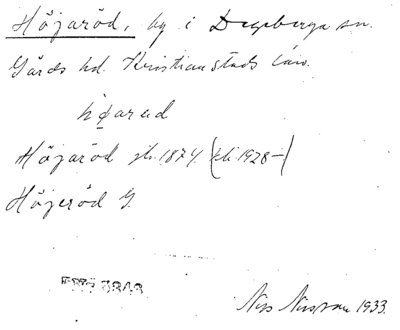 Höjaröd, by i Degeberga sn.
Gärds hd. Kristianstads län.
Höjaröd jb. 1874. 1928–)
Höjeröd G.
Nils Nilsson 1933.